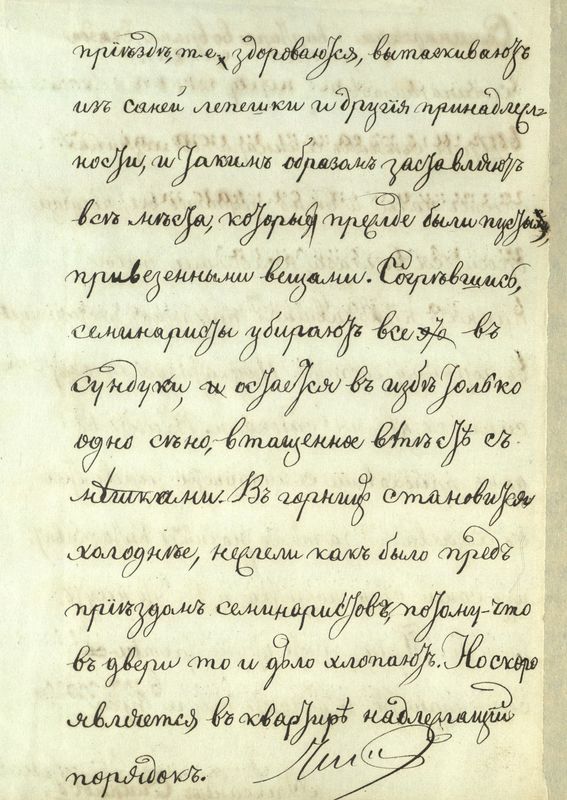 пріѣздѣ, т.е. здороваются, вытаскиваютъ
изъ саней лепешки и другія принадлеж-
ности, и такимъ образомъ заставляютъ
всѣ мѣста, которыя прежде были пусты,
привезенными вещами. Согрѣвшись,
семинаристы убираютъ все въ
сундуки, и остается въ избѣ только
одно сѣно, втащенное вмѣстѣ съ
мѣшками. Въ горницѣ становится
холоднѣе, нежели какъ было предъ
пріѣздомъ семинаристовъ, потому-что
въ двери то и дѣло хлопаютъ. Но скоро
является въ квартирѣ надлежащій
порядокъ.